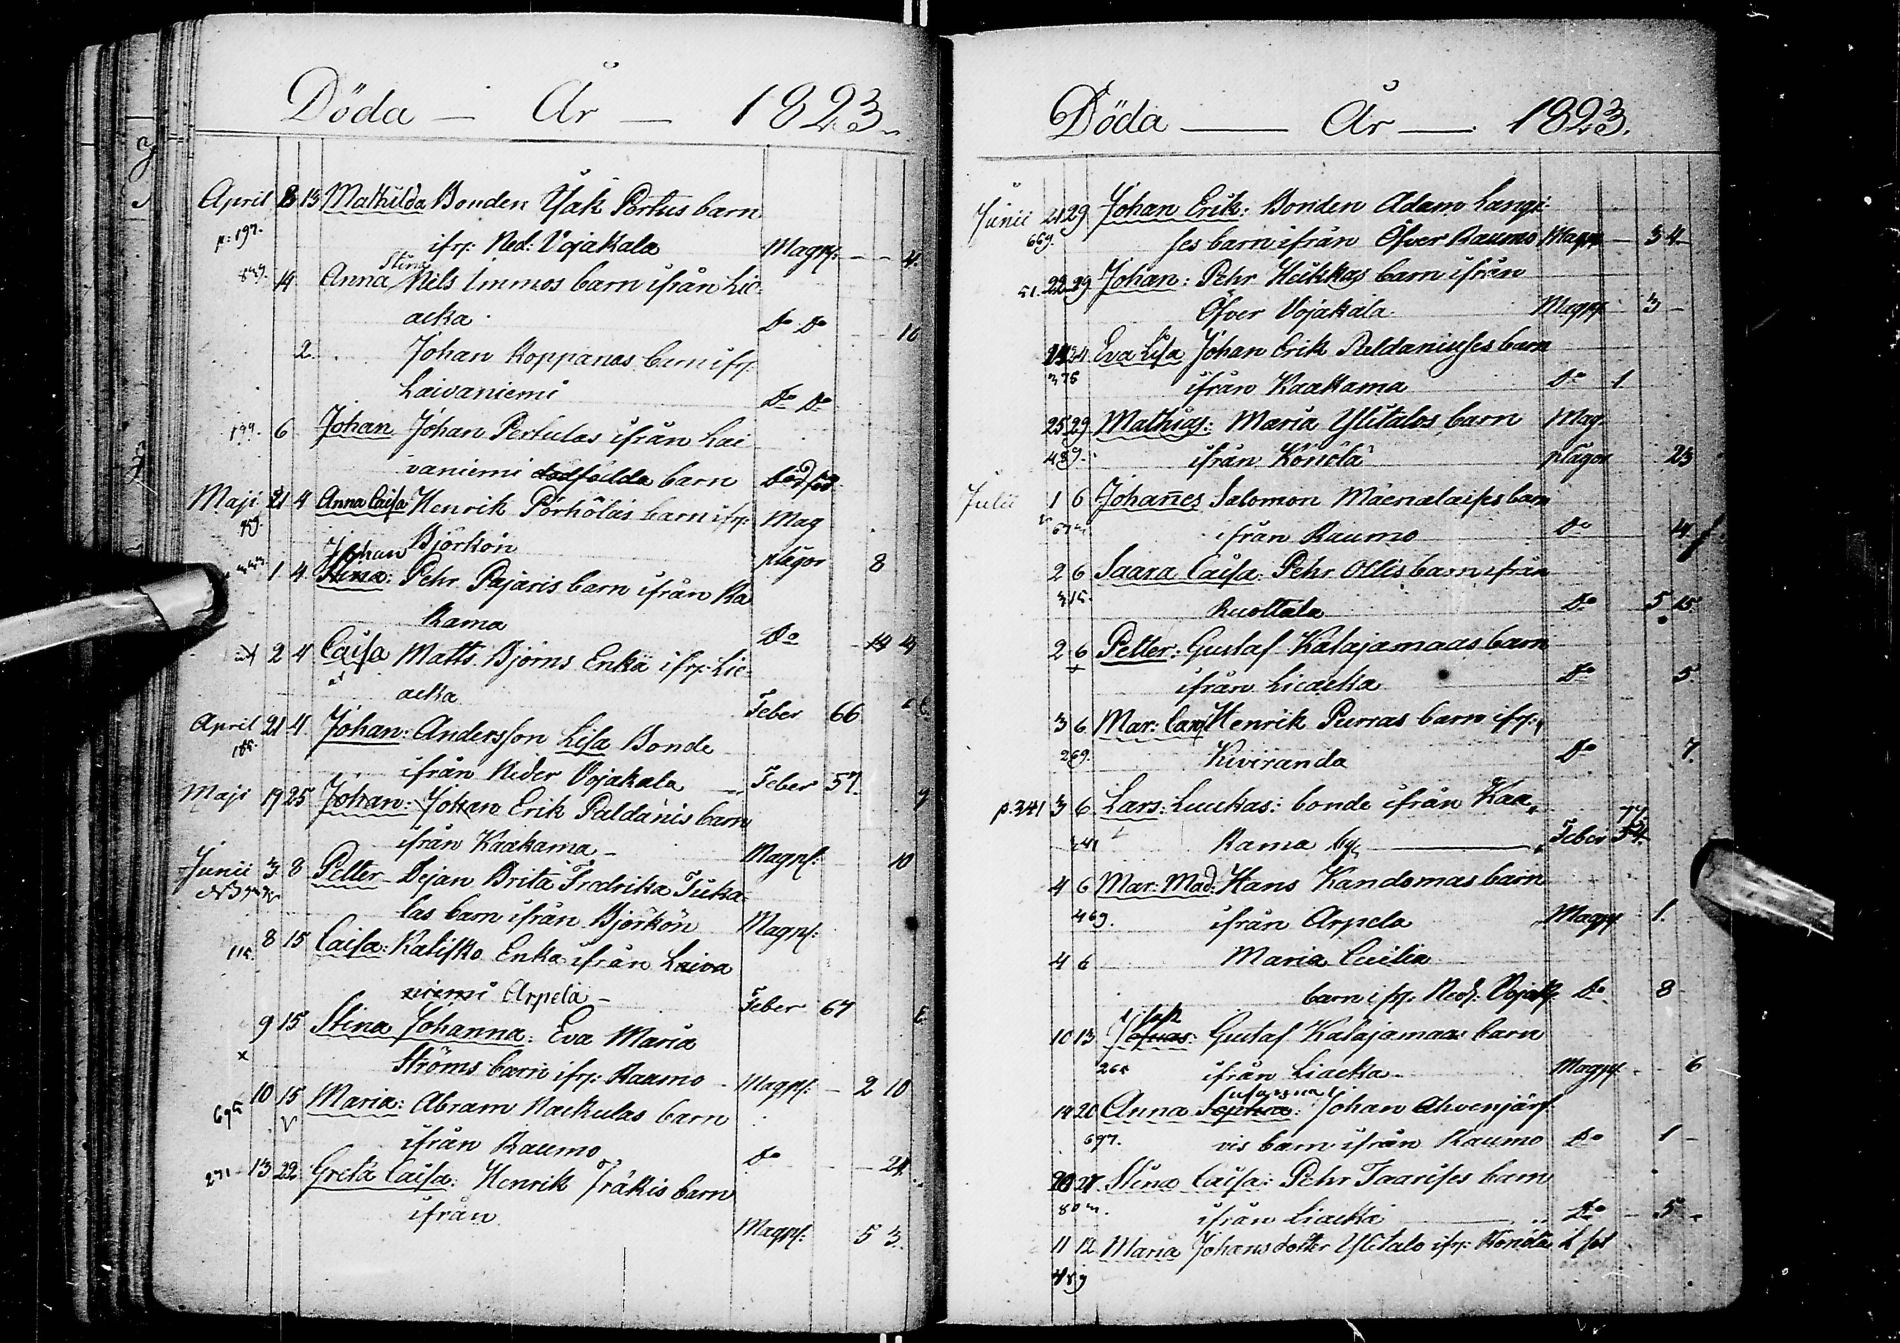 Döda — År — 1823.
April 8 13 Mathilda Bonden Isak Portus barn
p. 197. ifr: Ned: Vojakala Magpl: — — 4.
Stina
14 Anna Nils Immos barn ifrån Lie-
acka. Do Do 10
2. Johan Koppanas barn ifr:
Laivaniemi Do Do
199. 6 Johan Johan Pertulas ifrån Lai
vaniemi dödfödda barn Dödföd.
Maji 21 4 Anna Caisa Henrik Pörhöläs barn ifr: Mag
Björkön plågor 8
Johan
1 4 Stina: Pehr Pajaris barn ifrån Ka
kama Do 14
2 4 Caisa Matts Björns Enka ifr: Lie-
acka Feber 66
April 21 4 Johan: Andersson Lisa Bonde
185. ifrån Neder Vojakala Feber 57.
Maji 19 25 Johan: Johan Erik Paldanis barn
ifrån Kaakama — Magpl: 10
Junii 3. 8 Petter Pejan Brita Fredrika Tuka
las barn ifrån Björkön Magpl:
8 15 Caisa: Kalisko Enka ifrån Laiva
115. niemi Arpela — Feber 67
9 15 Stina Johanna: Eva Maria
x Ströms barn ifr: Raumo Magpl: — 2 10
10 15 Maria: Abram Nackulas barn
695 v ifrån Raumo Do 24
271 13 22 Greta Caisa: Henrik Träkis barn
ifrån Magpl: 5 3.
Döda — År — 1823.
Junii 21 29 Johan Erik: Bonden Adam Langi:
669. ses barn ifrån Öfver Raumo Magpl — 3 4
51. 22 29 Johan: Pehr Heikkas barn ifrån
Öfver Vojakala. Magpl 3 —
24 Eva Lisa Johan Erik Peldaniuses barn
375 ifrån Kaakama Do 1
25 29 Mathias: Maria Ylitalos barn Mag.
489. ifrån Könölä plågor 23
Julii 1 6 Johañes Salomon Mäenalaises barn
ifrån Raumo Do 4
2 6 Saara Caisa: Pehr Ollis barn ifrån
315. Ruottala Do 5 15
2 6 Petter: Gustaf Kalajamaas barn
+ ifrån Lieacka Do 5
3 6 Mar: Caisa Henrik Purras barn ifr:
269. Kiviranda Do 7.
p. 241 3 6 Lars: Luukas: bonde ifrån Kaa-
77
241 kama by, — Feber 54.
4 6 Mar: Mad: Hans Kandomas barn
469. ifrån Arpela Magpl 1.
4 6 Maria Cecilia
barn ifr: Ned: Vojak: Do 8
10 13 Josuas: Gustaf Kalajamaas barn
265 ifrån Liacka — Magpl — 6
Susanna
14 20 Anna Sophia: Johan Ahvenjärf-
697. vis barn ifrån Raumo Do 1 —
20 27 Stina Caisa: Pehr Taarises barn
ifrån Liacka Do — 5 —
11 12 Maria Johansdotter Ylitalo ifr: Könölä
489